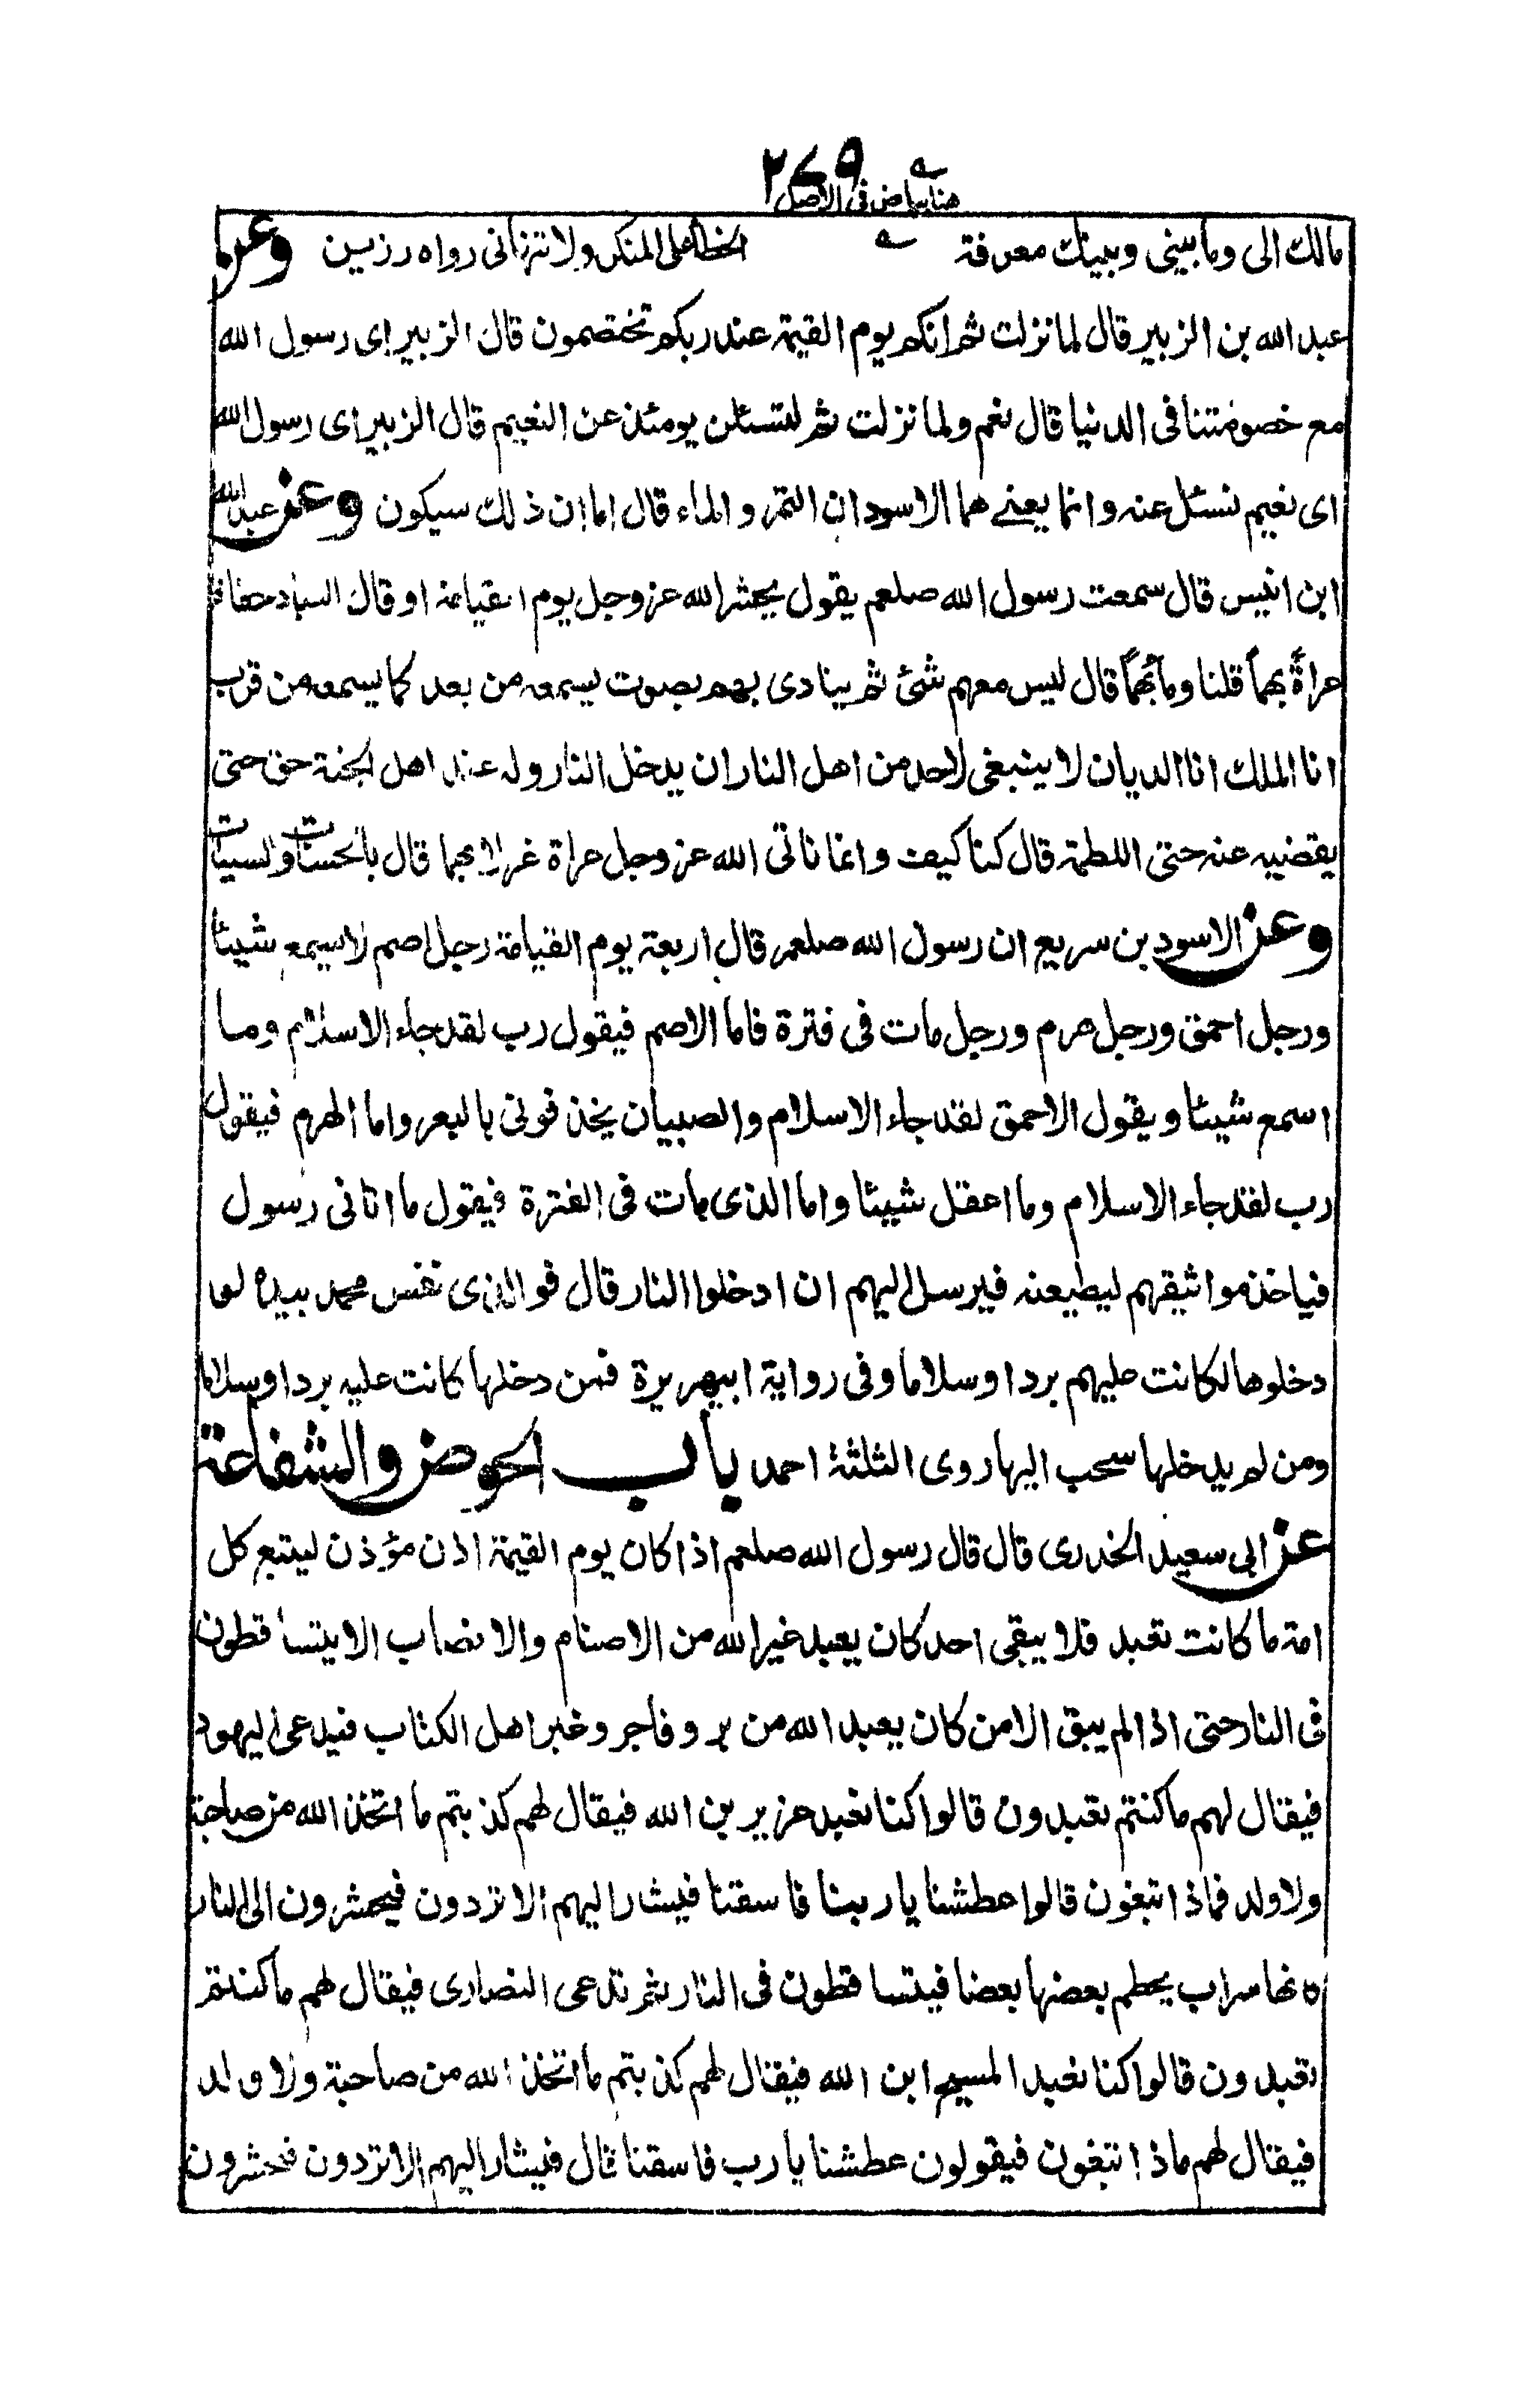 ٢٧٩
هنا بياض فى الاصل
مالك الى وما بينى وبينك معرفة الخطأ على المنكر ولا تنهانى رواه رزين وعن
عبد الله بن الزبير قال لما نزلت ثم انكم يوم القيمة عند ربكم تختصمون قال الزبير اى رسول الله
مع خصومتنا فى الدنيا قال نعم ولما نزلت ثم لتسئلن يومئذ عن النعيم قال الزبير اى رسول الله
اى نعيم نسئل عنه وانما يعنے هما الاسودان التمر والماء قال اما ان ذلك سيكون وعن عبد الله
ابن انيس قال سمعت رسول الله صلعم يقول يحشر الله عز وجل يوم القيامة او قال العباد حفاة
عراةً بهماً قلنا وما بُهماً قال ليس معهم شئ ثم ينادى بهم بصوت يسمعه من بعد كما يسمعه من قرب
انا الملك انا الديان لا ينبغى لاحد من اهل النار ان يدخل النار وله عند اهل الجنة حق حتى
يقضيه عنه حتى اللطمة قال كنا كيف وانما ناتى الله عز وجل عراة غرلا بهما قال بالحسنات والسيئات
وعن الاسود بن سريع ان رسول الله صلعم قال اربعة يوم القيامة رجل اصم لا يسمع شيئا
ورجل احمق ورجل هرم ورجل مات فى فترة فاما الاصم فيقول رب لقد جاء الاسلام وما
اسمع شيئا ويقول الاحمق لقد جاء الاسلام والصبيان يخذفونى بالبعر واما الهرم فيقول
رب لقد جاء الاسلام وما اعقل شيئا واما الذى مات فى الفترة فيقول ما اتانى رسول
فياخذ مواثيقهم ليطيعنه فيرسل اليهم ان ادخلوا النار قال فوالذى نفس محمد بيده لو
دخلوها لكانت عليهم بردا وسلاما وفى رواية ابيهريرة فمن دخلها كانت عليه بردا وسلاما
ومن لم يدخلها سحب اليها روى الثلثة احمد باب الحوض والشفاعة
عن ابى سعيد الخدرى قال قال رسول الله صلعم اذا كان يوم القيمة اذن مؤذن ليتبع كل
امة ما كانت تعبد فلا يبقى احد كان يعبد غير الله من الاصنام والانصاب الا يتساقطون
فى النار حتى اذا لم يبق الا من كان يعبد الله من بر وفاجر وغبر اهل الكتاب فيدعى اليهود
فيقال لهم ما كنتم تعبدون قالوا كنا نعبد عزير بن الله فيقال لهم كذبتم ما اتخذ الله من صاحبة
ولا ولد فماذا تبغون قالوا عطشنا يا ربنا فاسقنا فيشار اليهم الا تردون فيحشرون الى النار
كانها سراب يحطم بعضها بعضا فيتساقطون فى النار ثم تدعى النصارى فيقال لهم ما كنتم
تعبدون قالوا كنا نعبد المسيح ابن الله فيقال لهم كذبتم ما اتخذ الله من صاحبة ولا ولد
فيقال لهم ماذا تبغون فيقولون عطشنا يا رب فاسقنا قال فيشار اليهم الا تردون فحشرون